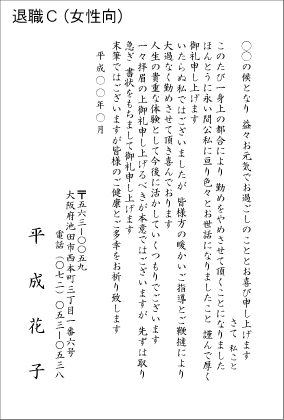 退職C(女性向)
○○の候となり 益々お元気でお過ごしのこととお喜び申し上げます
さて 私こと
このたび一身上の都合により 勤めをやめさせて頂くことになりました
ほんとうに永い間公私に亘り色々とお世話になりましたこと 謹んで厚く
御礼申し上げます
いたらぬ私ではございましたが 皆様方の暖かいご指導とご鞭撻により
大過なく勤めさせて頂き喜んでおります
人生の貴重な体験として今後に活かしていくつもりでございます
一々拝眉の上御礼申し上げるべきが本意ではございますが 先ずは取り
急ぎ書状をもちまして御礼申し上げます
末筆ではございますが皆様のご健康とご多幸をお祈り致します
平成○○年○月
〒五六三-〇〇五九
大阪府池田市西本町三丁目一番六号
電話(〇七二)〇五三-〇五三八
平成花子